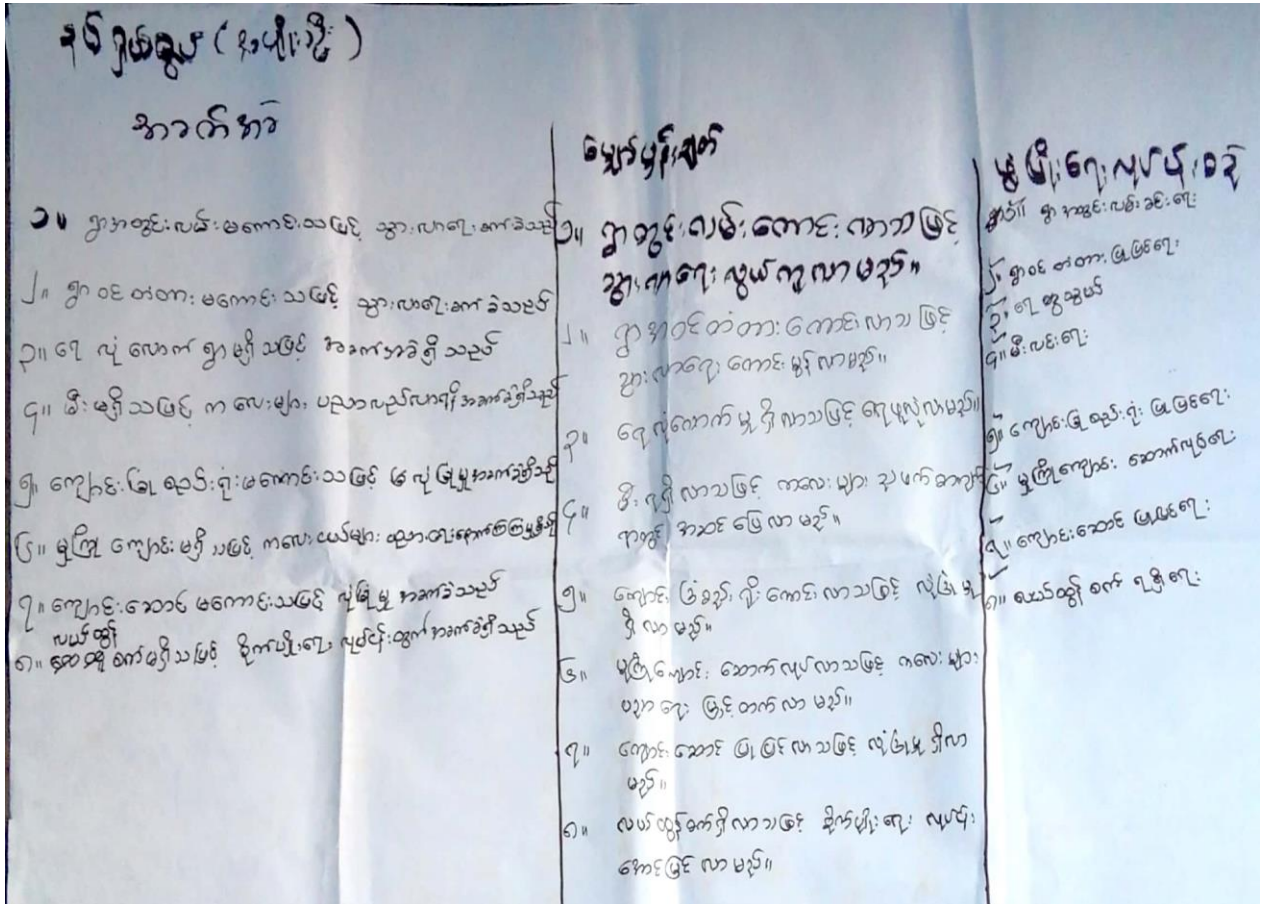 (အမျိုးသမီး)
အခက်အခဲ
၁။ ရွာအတွင်းလမ်းမကောင်းသဖြင့် သွားလာရေးခက်ခဲသည်
၂။ ရွာဝင်တံတားမကောင်းသဖြင့် သွားလာရေးခက်ခဲသည်
၃။ ရေလုံလောက်စွာမရှိသဖြင့် အခက်အခဲရှိသည်
၄။ မီးမရှိသဖြင့် ကလေးများပညာလည်လာရန်အခက်ခဲရှိသည်
၅။ ကျောင်းခြံစည်းရိုးမကောင်းသဖြင့် လုံခြုံမှုအခက်ခဲရှိသည်
၆။ မူကြိုကျောင်းမရှိသဖြင့် ကလေးငယ်များပညာရေးနောက်ကျမှုရှိသည်
၇။ ကျောင်းဆောင်မကောင်းသဖြင့် လုံခြုံမှုအခက်ခဲသည်
လယ်ထွန်
၈။ စက်မရှိသဖြင့် စိုက်ပျိုးရေးလုပ်ငန်းတွက်အခက်ခဲရှိသည်
မျှော်မှန်းချက်
၁။ ရွာတွင်းလမ်းကောင်းလာသဖြင့်
သွားလာရေးလွယ်ကူလာမည်။
၂။ ရွာအဝင်တံတားကောင်းလာသဖြင့်
သွားလာရေးကောင်းမွန်လာမည်။
၃။ ရေလုံလောက်မှုရှိလာသဖြင့်ရေဖူလုံလာမည်။
၄။ မီးရရှိလာသဖြင့် ကလေးများညဖက်စာကျက်
ရာတွင် အဆင်ပြေလာမည်။
၅။ ကျောင်းခြံစည်းရိုးကောင်းလာသဖြင့် လုံခြုံမှု
ရှိလာမည်။
၆။ မူကြိုကျောင်းဆောက်လုပ်လာသဖြင့် ကလေးများ
ပညာရေးမြင့်တက်လာမည်။
၇။ ကျောင်းဆောင်ပြုပြင်လာသဖြင့် လုံခြုံမှုရှိလာ
မည်။
၈။ လယ်ထွန်စက်ရှိလာသဖြင့် စိုက်ပျိုးရေးလုပ်ငန်း
အောင်မြင်လာမည်။
ဖွံ့ဖြိုးရေးလုပ်ငန်းစဉ်
ရွာအတွင်းလမ်းခင်းရေး
၂။ ရွာဝင်တံတားပြုပြင်ရေး
၃။ ရေသွယ်
၄။ မီးလင်းရေး
၅။ ကျောင်းခြံစည်းရိုးပြုပြင်ရေး
၆။ မူကြိုကျောင်းဆောက်လုပ်ရေး
၇။ ကျောင်းဆောင်ပြုပြင်ရေး
၈။ လယ်ထွန်စက်ရရှိရေး